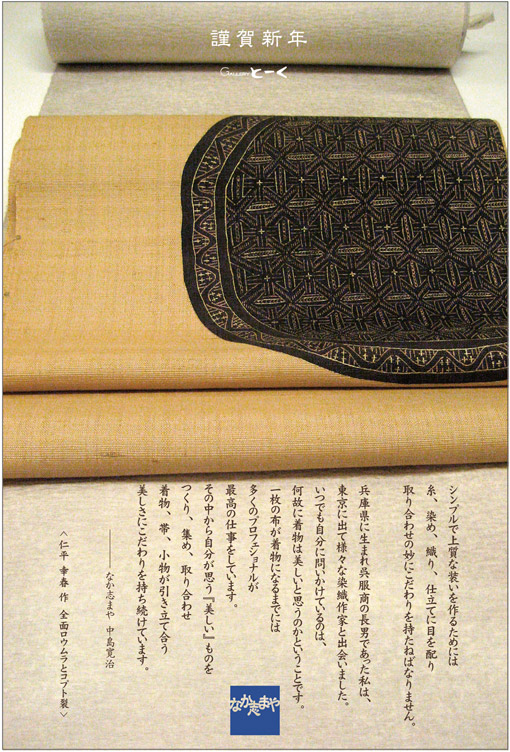 謹賀新年
GALLERY と一く
シンプルで上質な装いを作るためには
糸、染め、織り、仕立てに目を配り
取り合わせの妙にこだわりを持たねばなりません。
兵庫県に生まれ呉服商の長男であった私は、
東京に出て様々な染織作家と出会いました。
いつでも自分に問いかけているのは、
何故に着物は美しいと思うのかということです。
一枚の布が着物になるまでには
多くのプロフェショナルが
最高の仕事をしています。
その中から自分が思う『美しい』ものを
つくり、集め、取り合わせ
着物、帯、小物が引き立て合う
美しさにこだわりを持ち続けています。
――― なか志まや 中島寛治
〈仁平 幸春 作 全面ロウムラとコプト裂〉
なか志まや